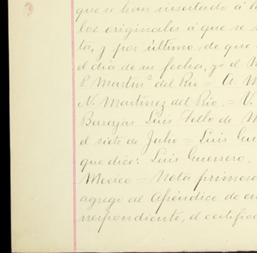 que se han insertado á l
los originales á que se r
ta, y por último, de que
el dia de su fecha, yo el N
P. Martinº del Rio = A M
N. Martinez del Rio. = V.
Barajas Luis Tello de M
el siete de Julio = Luis Gu
que dice: Luis Guerrero.
Mexico = Nota primera
agrego al Apéndice de es
rrespondiente, el certific